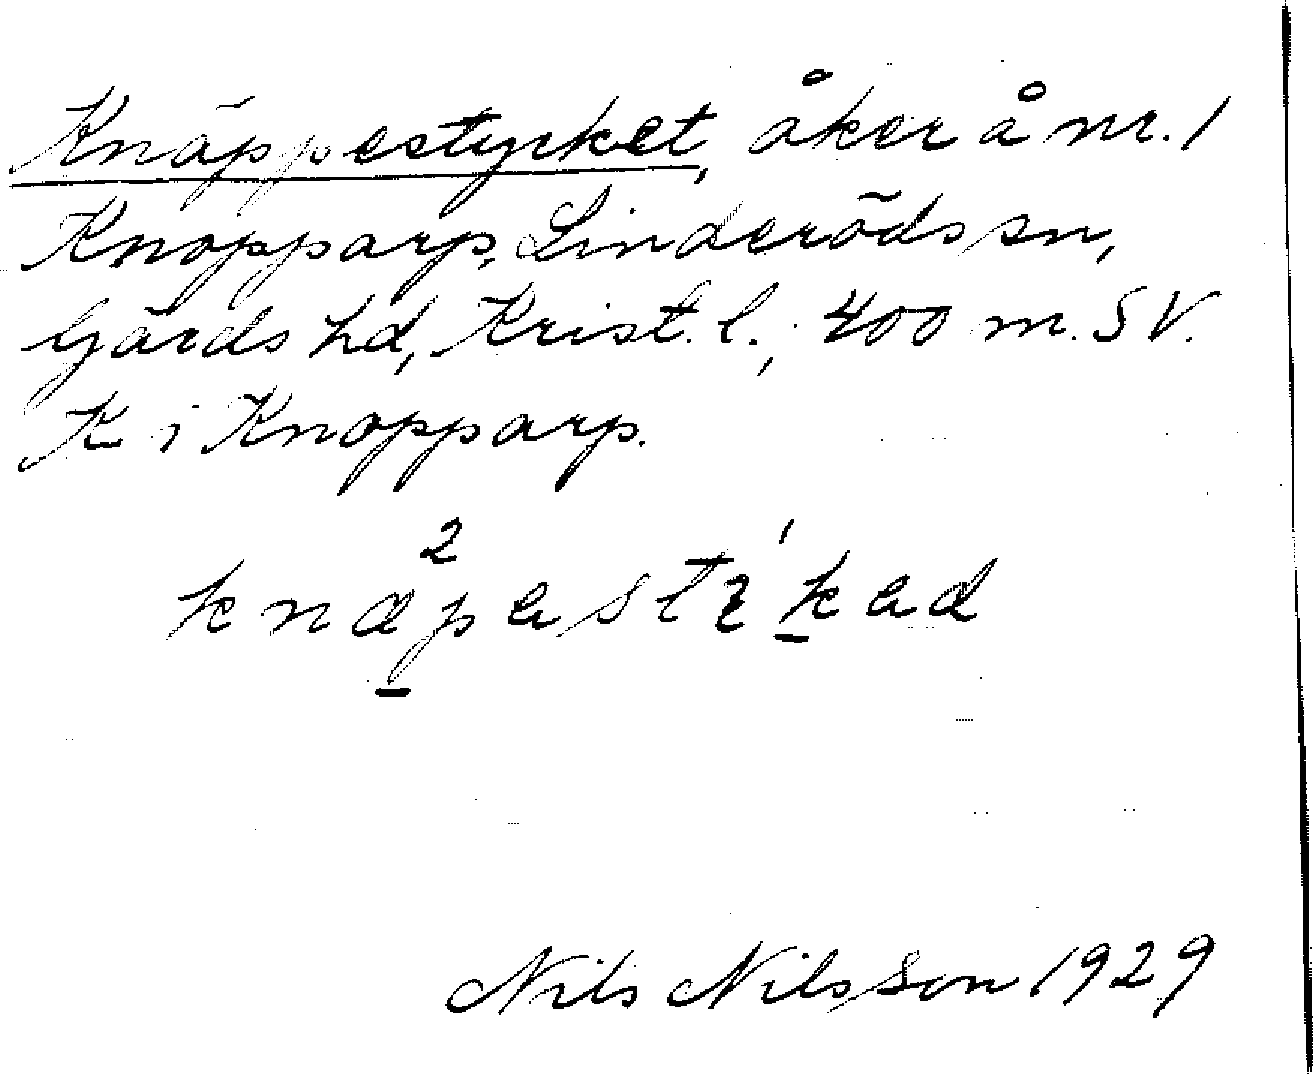 Knäppestycket, åker å nr. 1
Knopparp, Linderöds sn,
Gärds hd, Krist. l., 400 m. SV.
K i Knopparp.
Nils Nilsson 1929